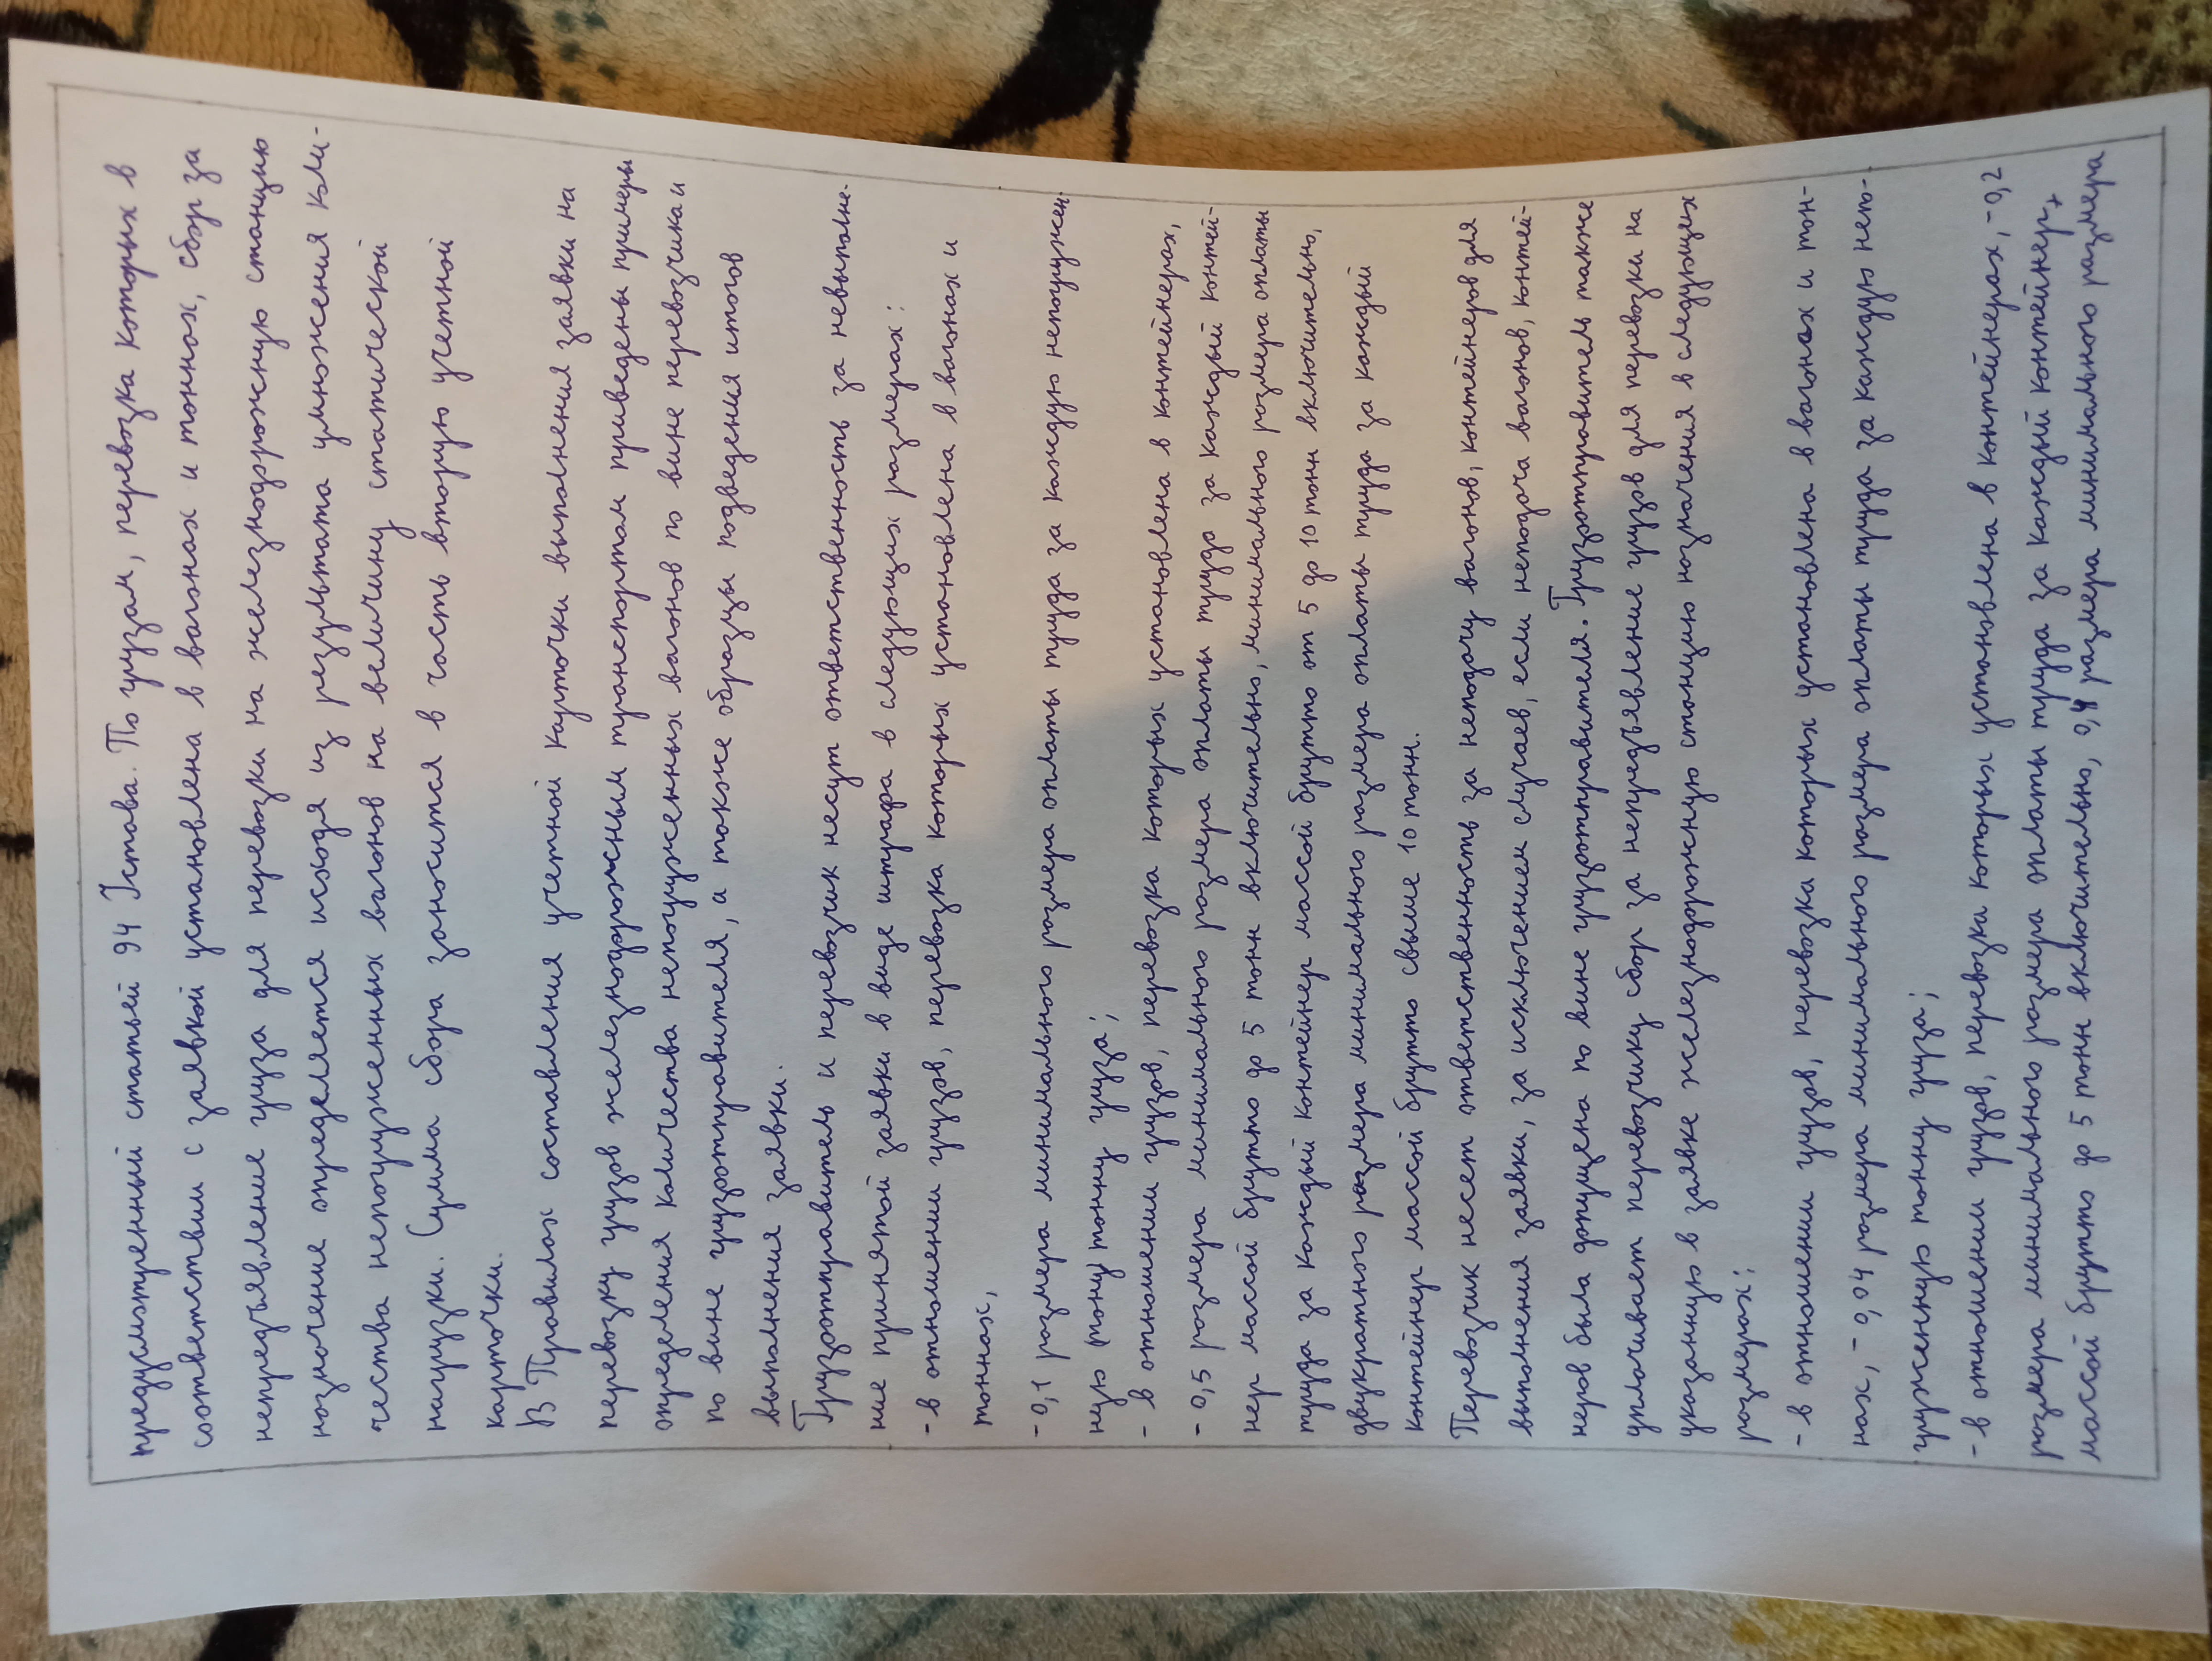 предусмотренный статьей 94 Устава. По грузам, перевозка которых в
соответствии с заявкой установлена в вагонах и тоннах, сбор за
непредъявление груза для перевозки на железнодорожную станцию
назначение определяется исходя из результата умножения коли-
чества непогруженных вагонов на величину статической
нагрузки. Сумма сбора заносится в часть вторую учетной
карточки.
В Правилах составления учетной карточки выполнения заявки на
перевозку грузов железнодорожным транспортом приведены примеры
определения количества непогруженных вагонов по вине перевозчика и
по вине грузоотправителя, а также образцы подведения итогов
выполнения заявки.
Грузоотправитель и перевозчик несут ответственность за невыполне-
ние принятой заявки в виде штрафа в следующих размерах:
- в отношении грузов, перевозка которых установлена в вагонах и
тоннах,
- 0,1 размера минимального размера оплаты труда за каждую непогружен
ную (тонну) тонну груза;
- в отношении грузов, перевозка которых установлена в контейнерах,
- 0,5 размера минимального размера оплаты труда за каждый контей-
нер массой брутто до 5 тонн включительно, минимального размера оплаты
труда за каждый контейнер массой брутто от 5 до 10 тонн включительно,
двукратного размера минимального размера оплаты труда за каждый
контейнер массой брутто свыше 10 тонн.
Перевозчик несет ответственность за неподачу вагонов, контейнеров для
выполнения заявки, за исключением случаев, если неподача вагонов, контей-
неров была допущена по вине грузоотправителя. Грузоотправитель также
уплачивает перевозчику сбор за непредъявление грузов для перевозки на
указанную в заявке железнодорожную станцию назначения в следующих
размерах:
- в отношении грузов, перевозка которых установлена в вагонах и тон-
нах, - 0,04 размера минимального размера оплаты труда за каждую непо-
груженную тонну груза;
- в отношении грузов, перевозка которых установлена в контейнерах, - 0,2
размера минимального размера оплаты труда за каждый контейнер,
массой брутто до 5 тонн включительно, 0,4 размера минимального размера